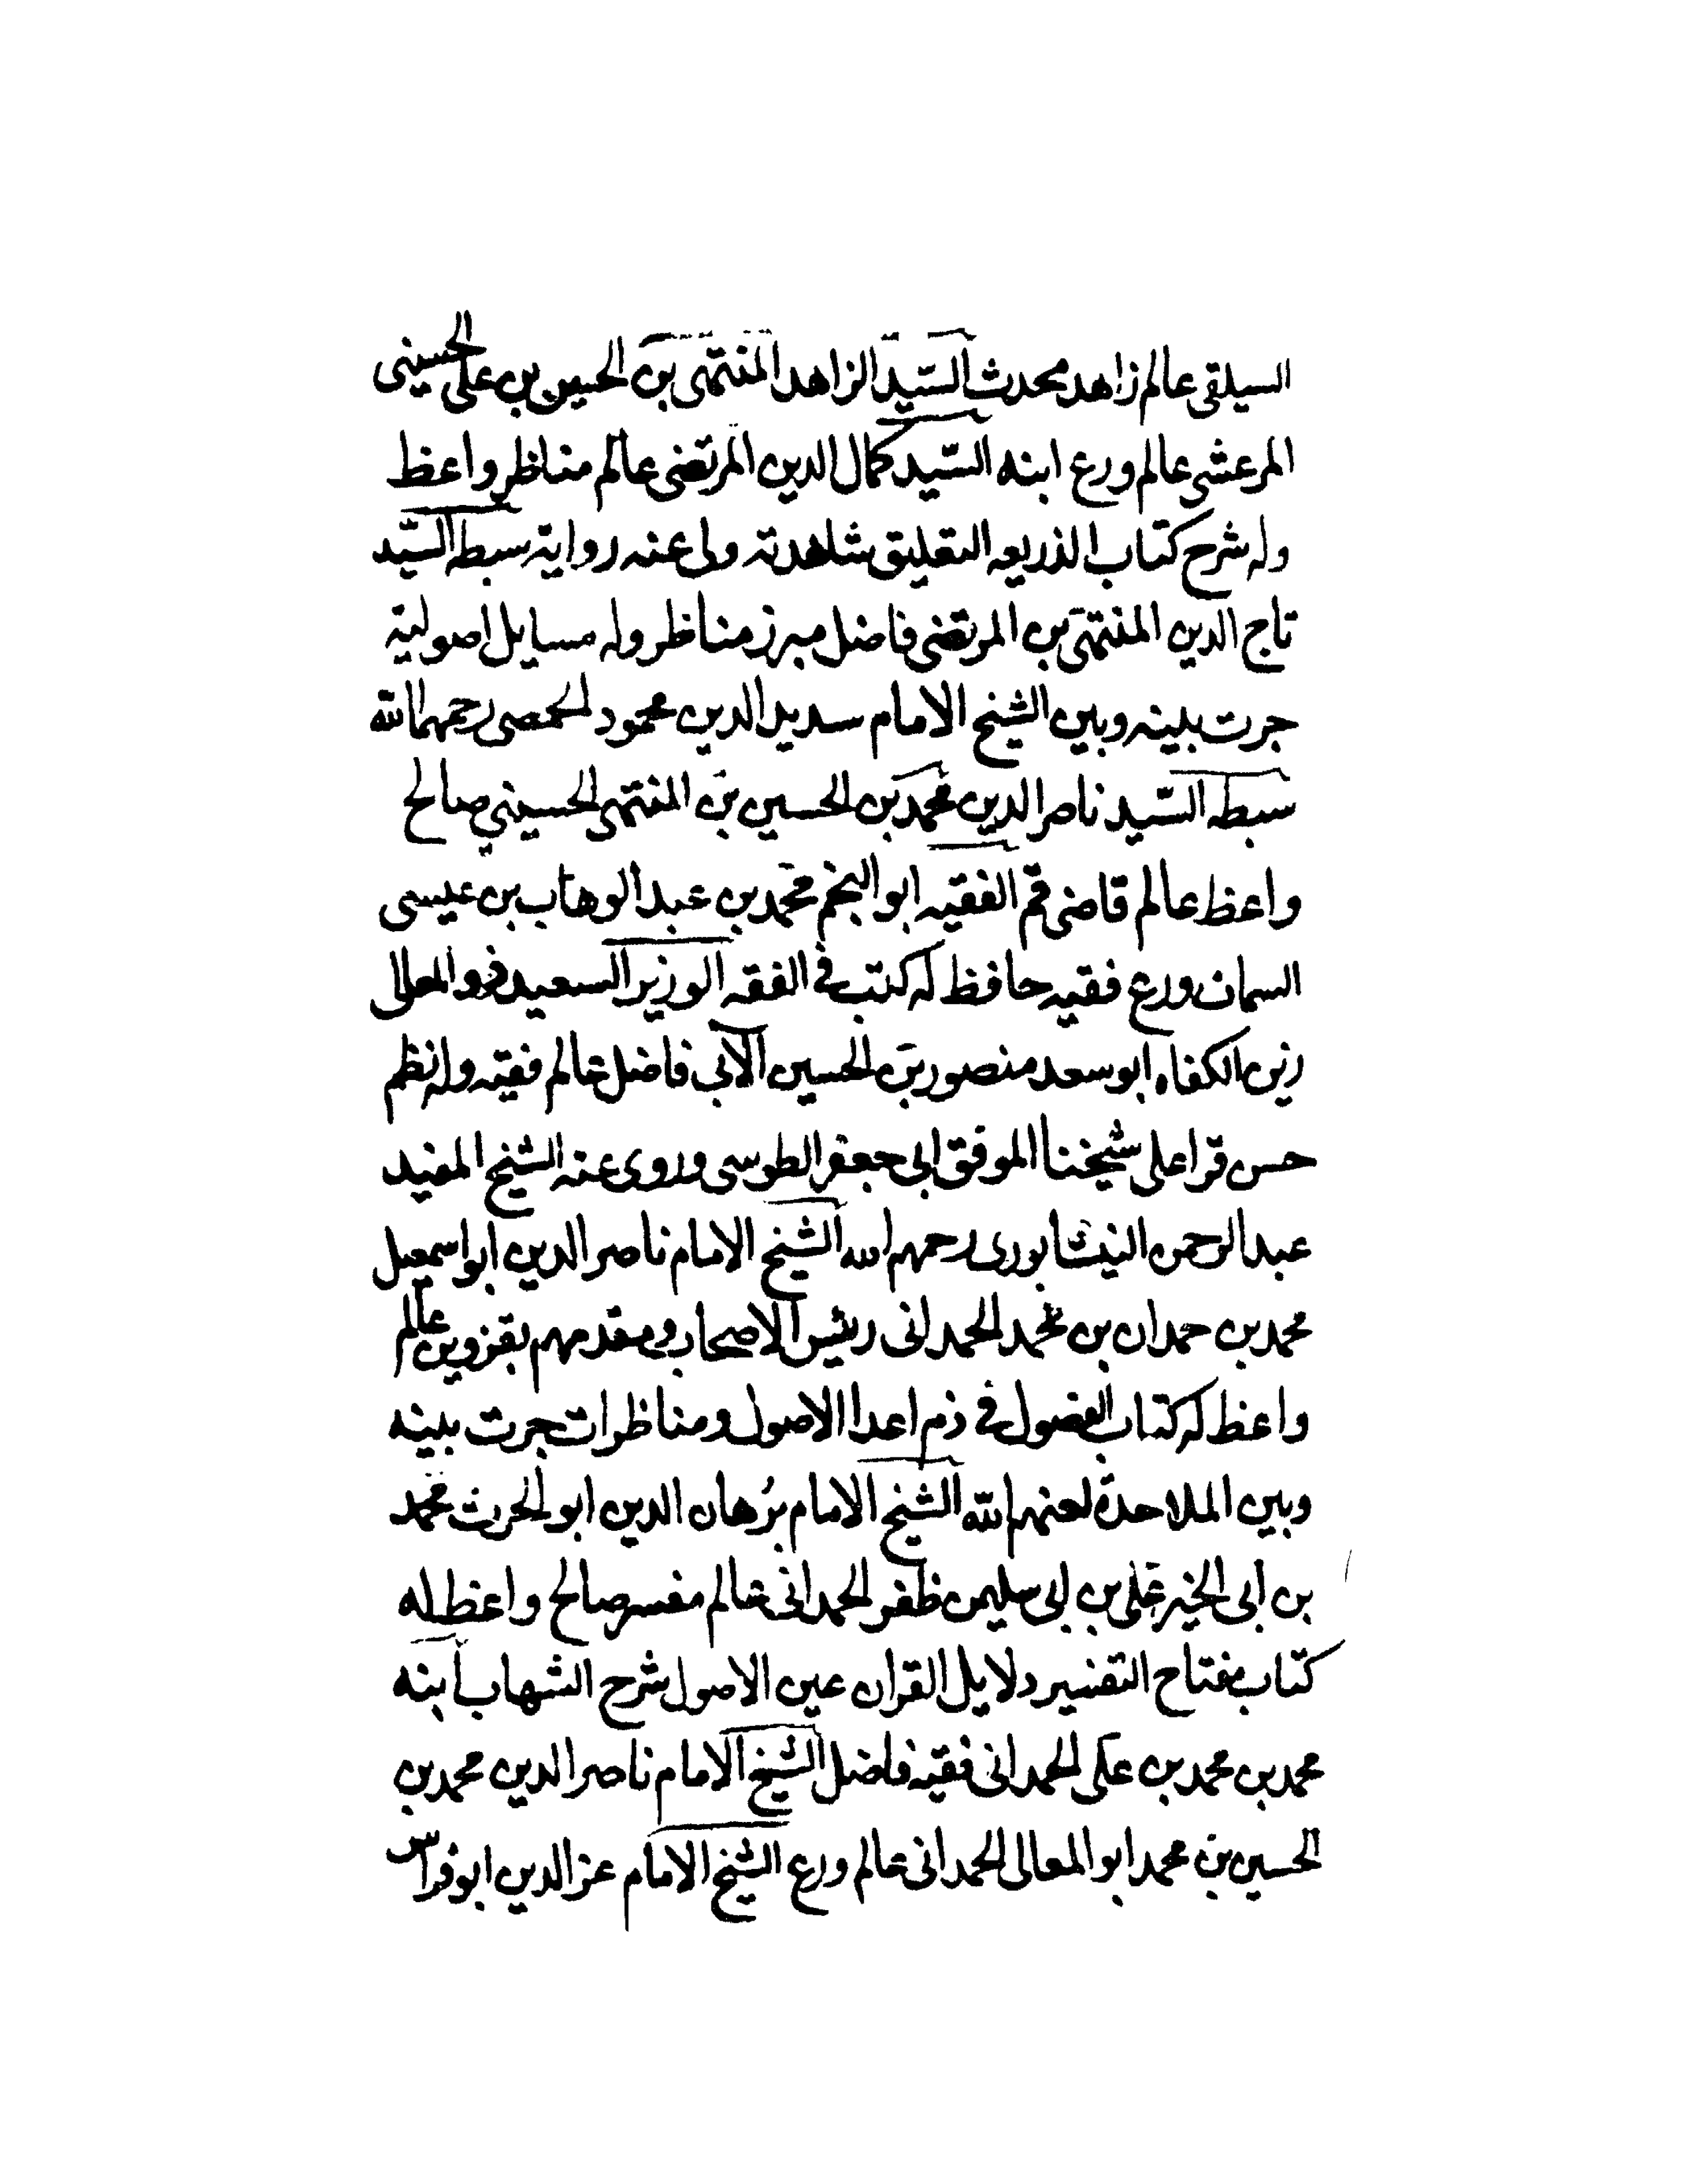 السيلقى عالم زاهد محدث السّيد الزاهد المنتهى بن الحسين بن على الحسينى
المرعشى عالم ورع ابنه السّيد كمال الدين المرتضى عالم مناظر واعظ
وله شرح كتاب الذريعه التعليق شاهدته ولى عنه رواية سبطه السّيد
تاج الدين المنتهى بن المرتضى فاضل مبرز مناظر وله مسايل اصولية
جرت بينه وبين الشيخ الامام سديد الدين محمود الحمصى رحمهما الله
سبطه السّيد ناصر الدين محمد بن الحسين بن المنتهى الحسيني صالح
واعظ عالم قاضى قم الفقيه ابو النجم محمد بن عبد الوهاب بن عيسى
السمان ورع فقيه حافظ له كتب في الفقه الوزير السعيد ذو المعالى
زين الكفاه ابو سعد منصور بن الحسين الآبي فاضل عالم فقيه وله نظم
حسن قرا على شيخنا الموفق ابى جعفر الطوسى وروى عنه الشيخ المفيد
عبد الرحمن النيشابورى رحمهم الله الشيخ الامام ناصر الدين ابو اسمعيل
محمد بن حمدان بن محمد الحمدانى رئيس الاصحاب ومقدمهم بقزوين عالم
واعظ له كتاب الفصول في ذم اعدا الاصول ومناظرات جرت بينه
وبين الملاحدة لعنهم الله الشيخ الامام بُرهان الدين ابو الحرث محمد
بن ابى الخير على بن ابى سليمن ظفر الحمدانى عالم مفسر صالح واعظ له
كتاب مفتاح التفسير دلايل القران عين الاصول شرح الشهاب ابنه
محمد بن محمد بن على الحمدانى فقيه فاضل الشيخ الامام ناصر الدين محمد بن
الحسين بن محمد ابو المعالى الحمدانى عالم ورع الشيخ الامام عز الدين ابو فراس